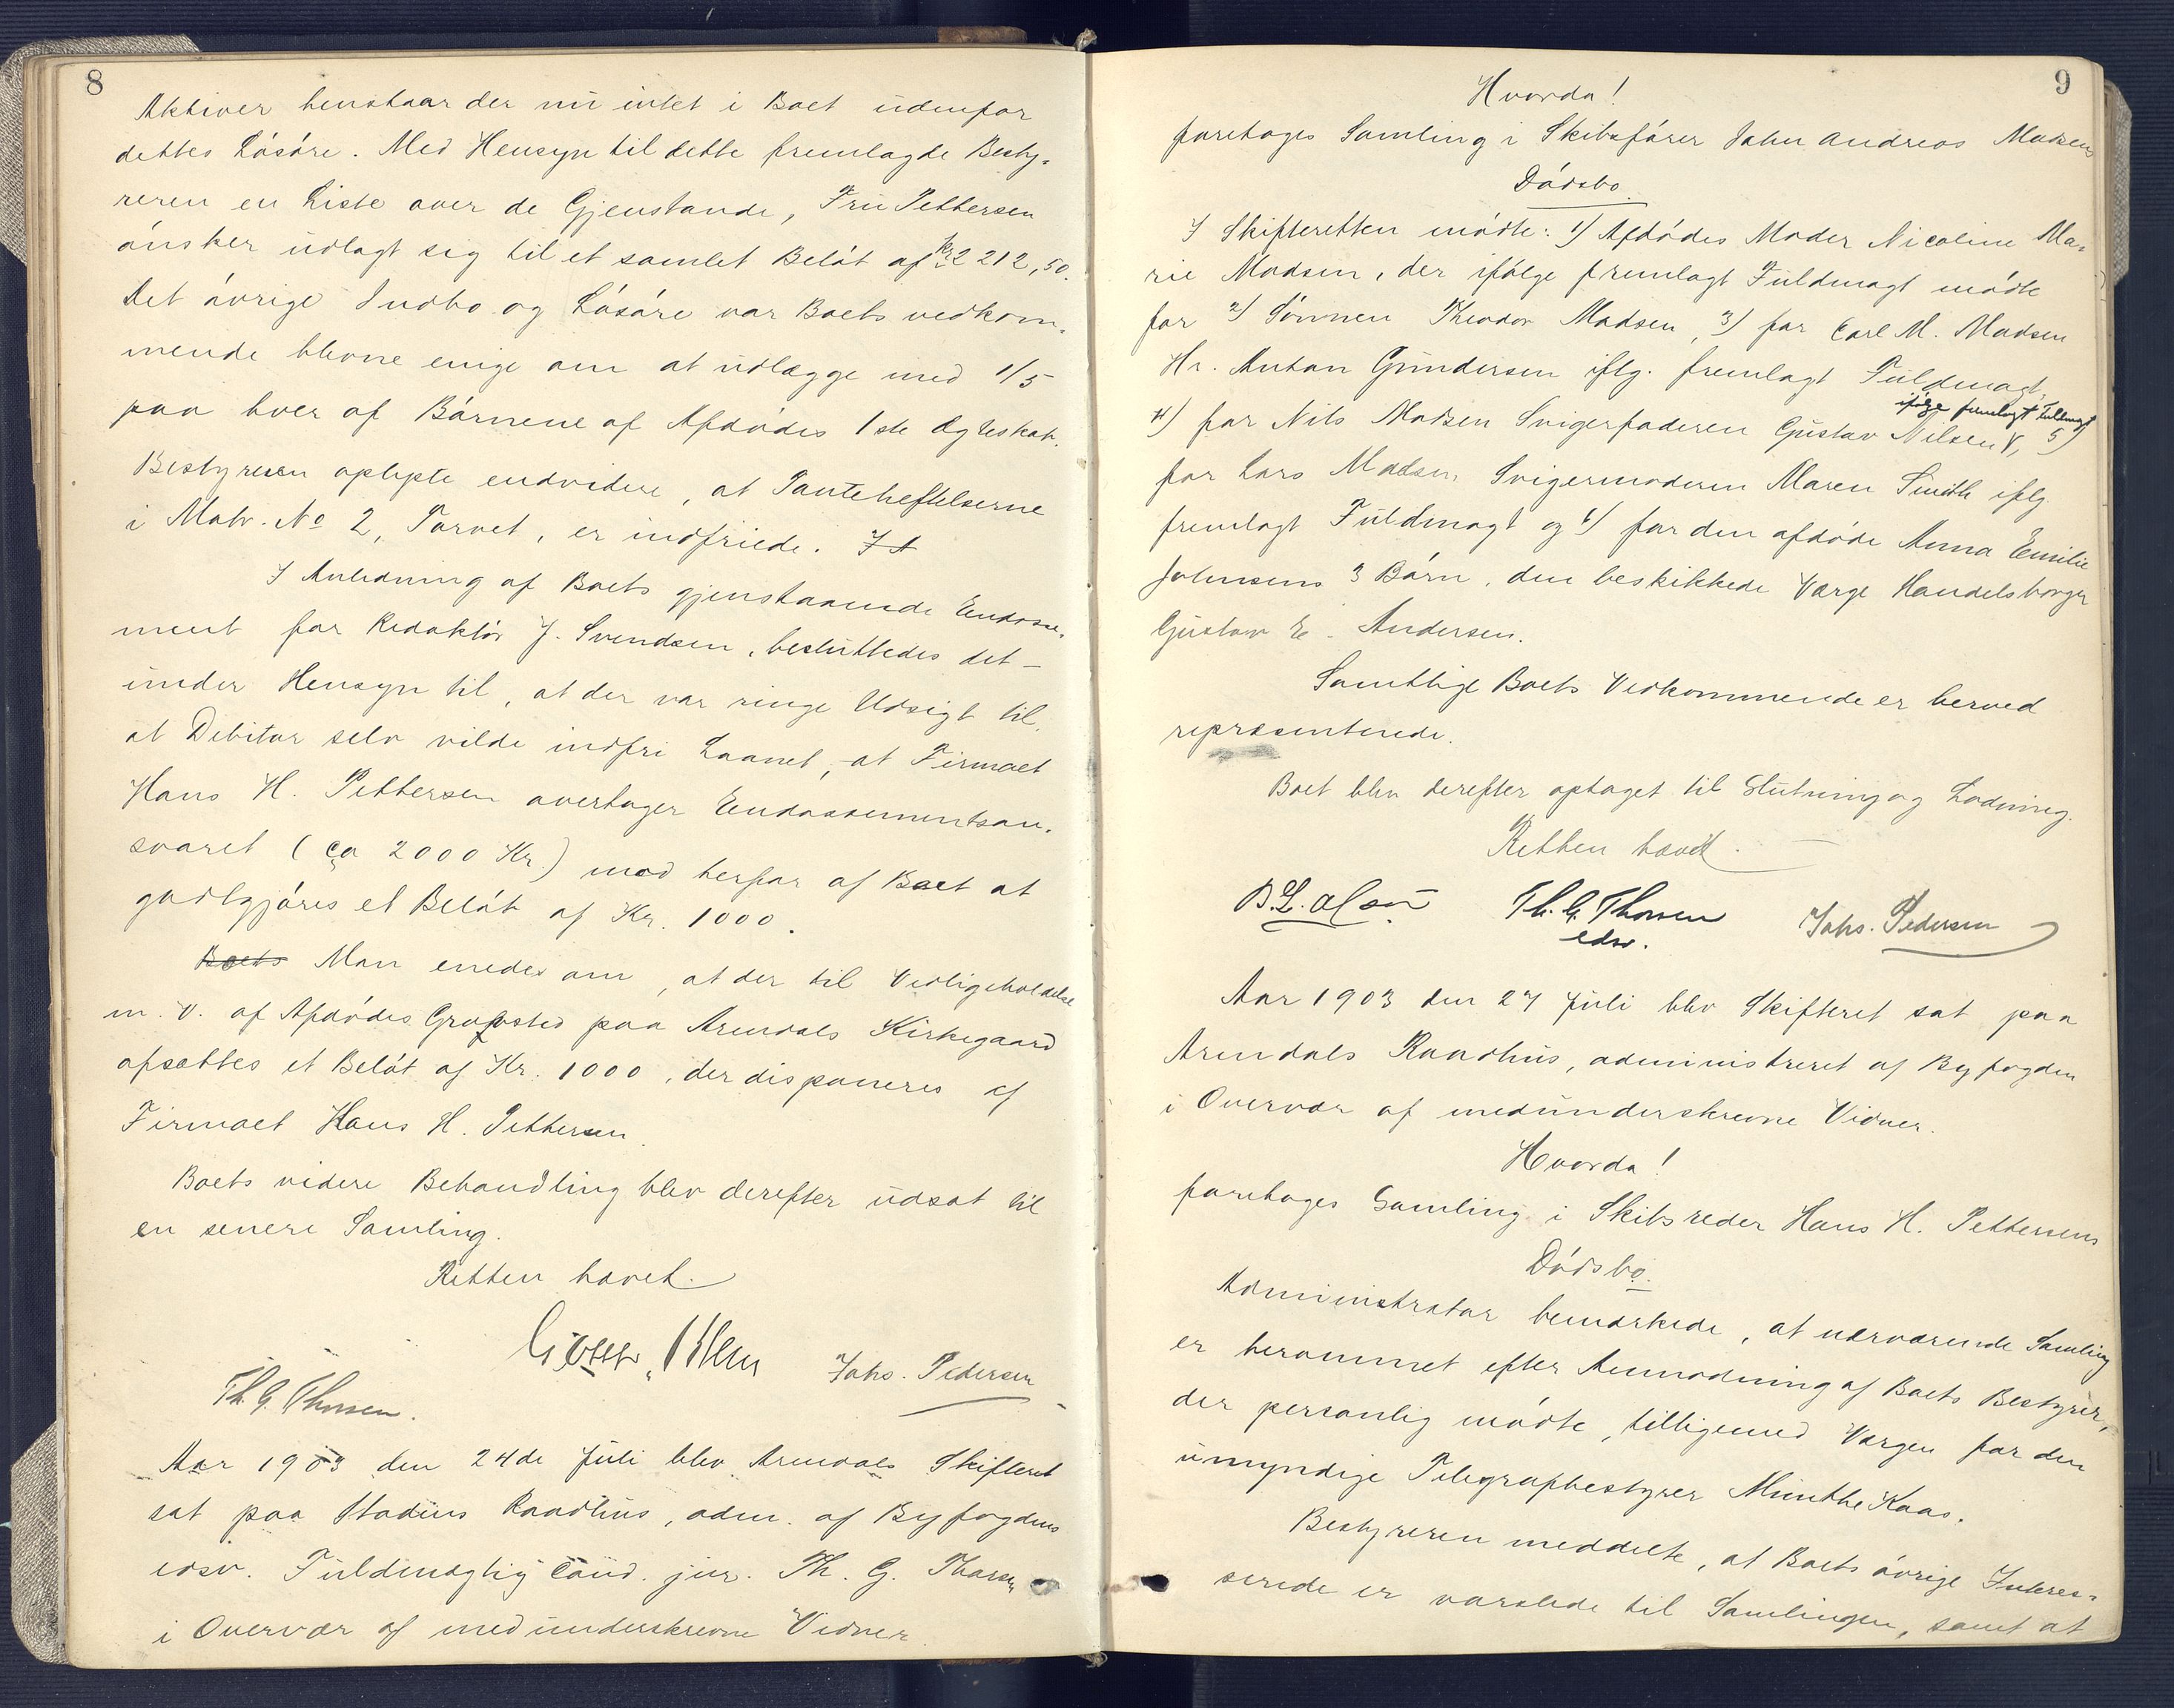 8
Aktiver henstaar der nu intet i Boet udenfor
dettes Løsøre. Med Hensyn til dette fremlagde Besty-
reren en Liste over de Gjenstande, Fru Pettersen
ønsker udlagt sig til et samlet Beløb af Kr 2 212,50.
Det øvrige Indbo og Løsøre var Boets vedkom-
mende blevne enige om at udlægge med 1/5
paa hver af Børnene af Afdødes 1ste Ægteskab.
Bestyreren oplyste endvidere, at Pantehæftelserne
i Matr. No 2, Torvet, er indfriede. I A
I Anledning af Boets gjenstaaende Endosse-
ment for Redaktør J. Svendsen, besluttedes det –
under Hensyn til, at der var ringe Udsigt til,
at Debitor selv vilde indfri Laanet, – at Firmaet
Hans H. Pettersen overtager Endossementsan-
svaret (ca 2000 Kr.) mod herfor af Boet at
godtgjøres et Beløb af Kr. 1000.
Boets Man enedes om, at der til Vedligeholdelse
m. v. af Afdødes Gravsted paa Arendals Kirkegaard
afsættes et Beløb af Kr. 1000, der disponeres af
Firmaet Hans H. Pettersen.
Boets videre Behandling blev derefter udsat til
en senere Samling.
Retten hævet.
Johs. Pedersen
Th. G. Thorsen.
Aar 1903 den 24de Juli blev Arendals Skifteret
sat paa Stadens Raadhus, adm. af Byfogdens
edsv. Fuldmægtig Cand. jur. Th. G. Thorsen
i Overvær af medunderskrevne Vidner.
9
Hvorda!
foretages Samling i Skibsfører John Andreas Madsens
Dødsbo.
I Skifteretten mødte: 1) Afdødes Moder Nicoline Ma-
rie Madsen, der ifølge fremlagt Fuldmagt mødte
for 2) Sønnen Theodor Madsen, 3) for Carl M. Madsen
Hr. Anton Gundersen iflg. fremlagt Fuldmagt,
ifølge fremlagt Fuldmagt
4) for Nils Madsen Svigerfaderen Gustav Nilsen, 5)
for Lars Madsen Svigermoderen Maren Smith iflg.
fremlagt Fuldmagt og 6) for den afdøde Anna Emilie
Johnsens 3 Børn, den beskikkede Værge Handelsborger
Gustav E. Andersen.
Samtlige Boets Vedkommende er herved
repræsenterede.
Boet blev derefter optaget til Slutning og Lodning.
Retten hævet.
Th. G. Thorsen
edsv.
Johs. Pedersen
Aar 1903 den 27 Juli blev Skifteret sat paa
Arendals Raadhus, administreret af Byfogden
i Overvær af medunderskrevne Vidner.
Hvorda!
foretages Samling i Skibsreder Hans H. Pettersens
Dødsbo.
Administrator bemærkede, at nærværende Samling
er berammet efter Anmodning af Boets Bestyrer,
der personlig mødte, tilligemed Værgen for den
umyndige Telegrafbestyrer Munthe Kaas.
Bestyreren meddelte, at Boets øvrige Interes-
serede er varslede til Samlingen, samt at